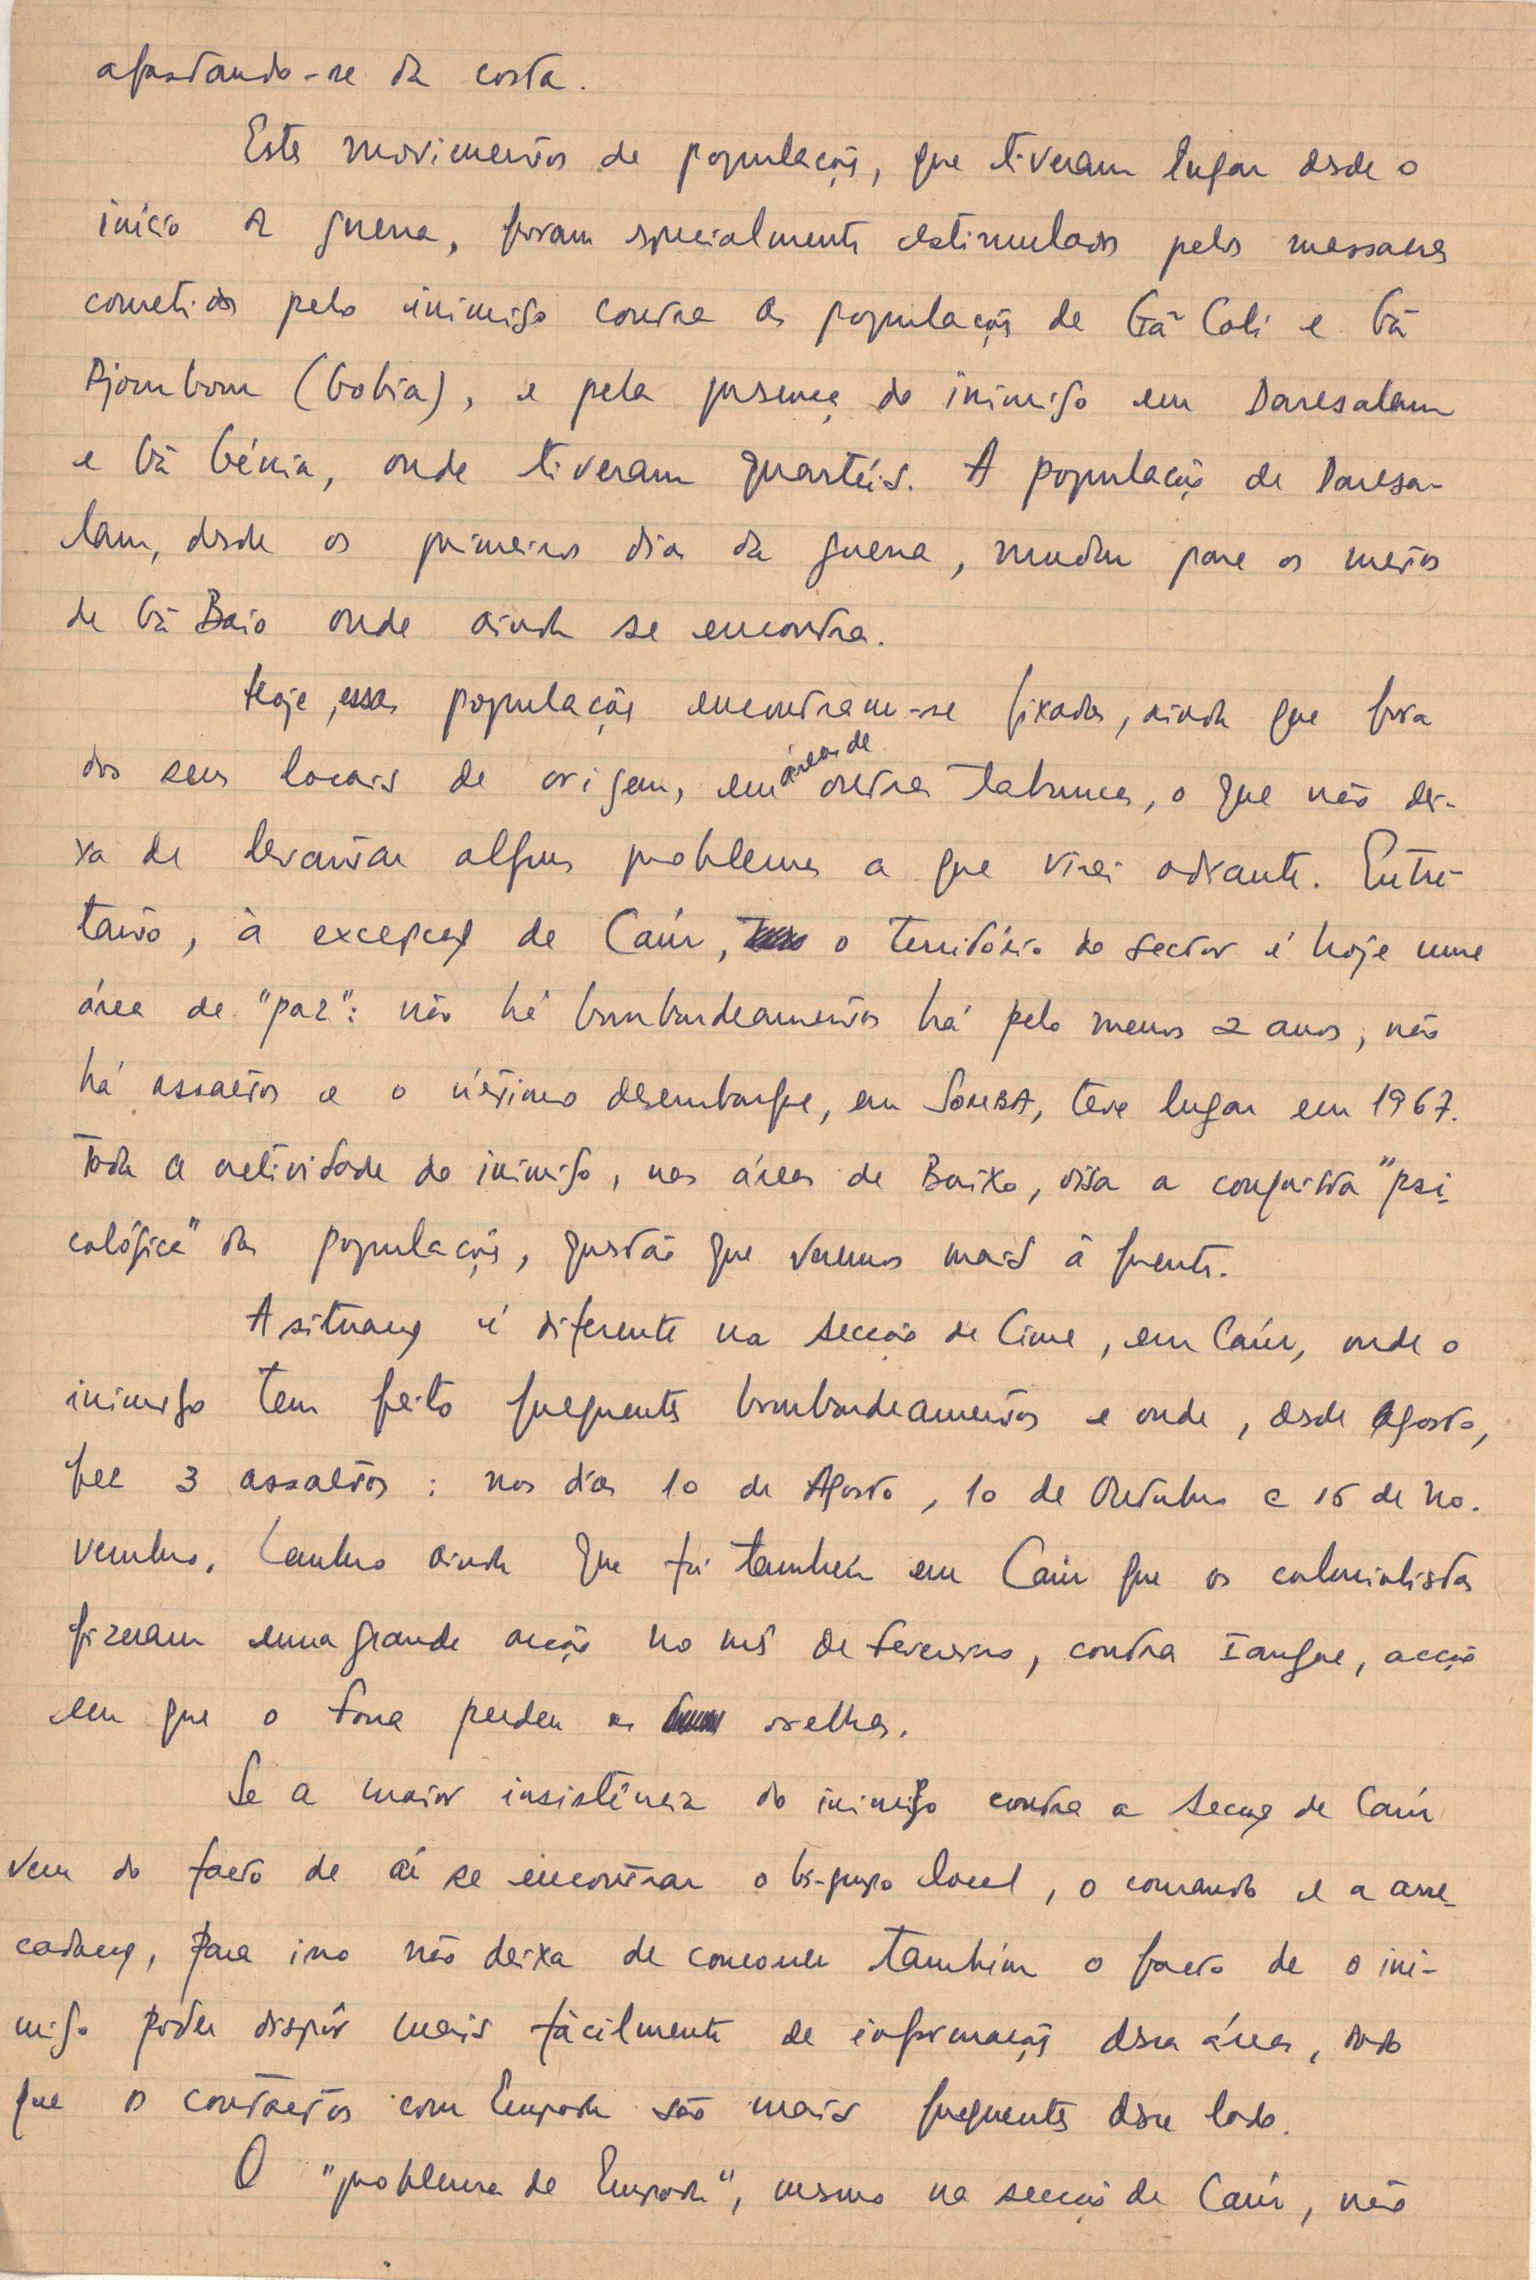 afastando-se da costa.
Estes movimentos de populações, que tiveram lugar desde o
início da guerra, foram especialmente estimulados pelos massacres
cometidos pelo inimigo contra as populações de Gã Coli e Gã
Djombom (Gobia), e pela presença do inimigo em Daresalam
e Gã Génia, onde tiveram quartéis. A população de Daresa-
lam, desde os primeiros dias da guerra, mudou para os matos
de Gã Baio onde ainda se encontra.
Hoje, essas populações encontram-se fixadas, ainda que fora
dos seus locais de origem, em áreas de outras tabancas, o que não dei-
xa de levantar alguns problemas a que virei adiante. Entre-
tanto, à excepção de Caúr, o território do sector é hoje uma
área de "paz": não há bombardeamentos há pelo menos 2 anos, não
há assaltos e o último desembarque, em SOMBA, teve lugar em 1967.
Toda a actividade do inimigo, nas áreas de Baixo, visa a conquista "psi-
cológica" das populações, questão que veremos mais à frente.
A situação é diferente na secção de Cima, em Caúr, onde o
inimigo tem feito frequentes bombardeamentos e onde, desde Agosto,
fez 3 assaltos: nos dias 10 de Agosto, 10 de Outubro e 15 de No-
vembro. Lembro ainda que foi também em Caúr que os colonialistas
fizeram uma grande acção no mês de Fevereiro, contra Iangue, acção
em que o Fona perdeu as orelhas.
Se a maior insistência do inimigo contra a secção de Caúr
vem do facto de aí se encontrar o bi-grupo local, o comando e a arre-
cadação, para isso não deixa de concorrer também o facto de o ini-
migo poder dispôr mais fàcilmente de informações dessa área, dado
que os contactos com Empada são mais frequentes desse lado.
O "problema de Empada", mesmo na secção de Caúr, não